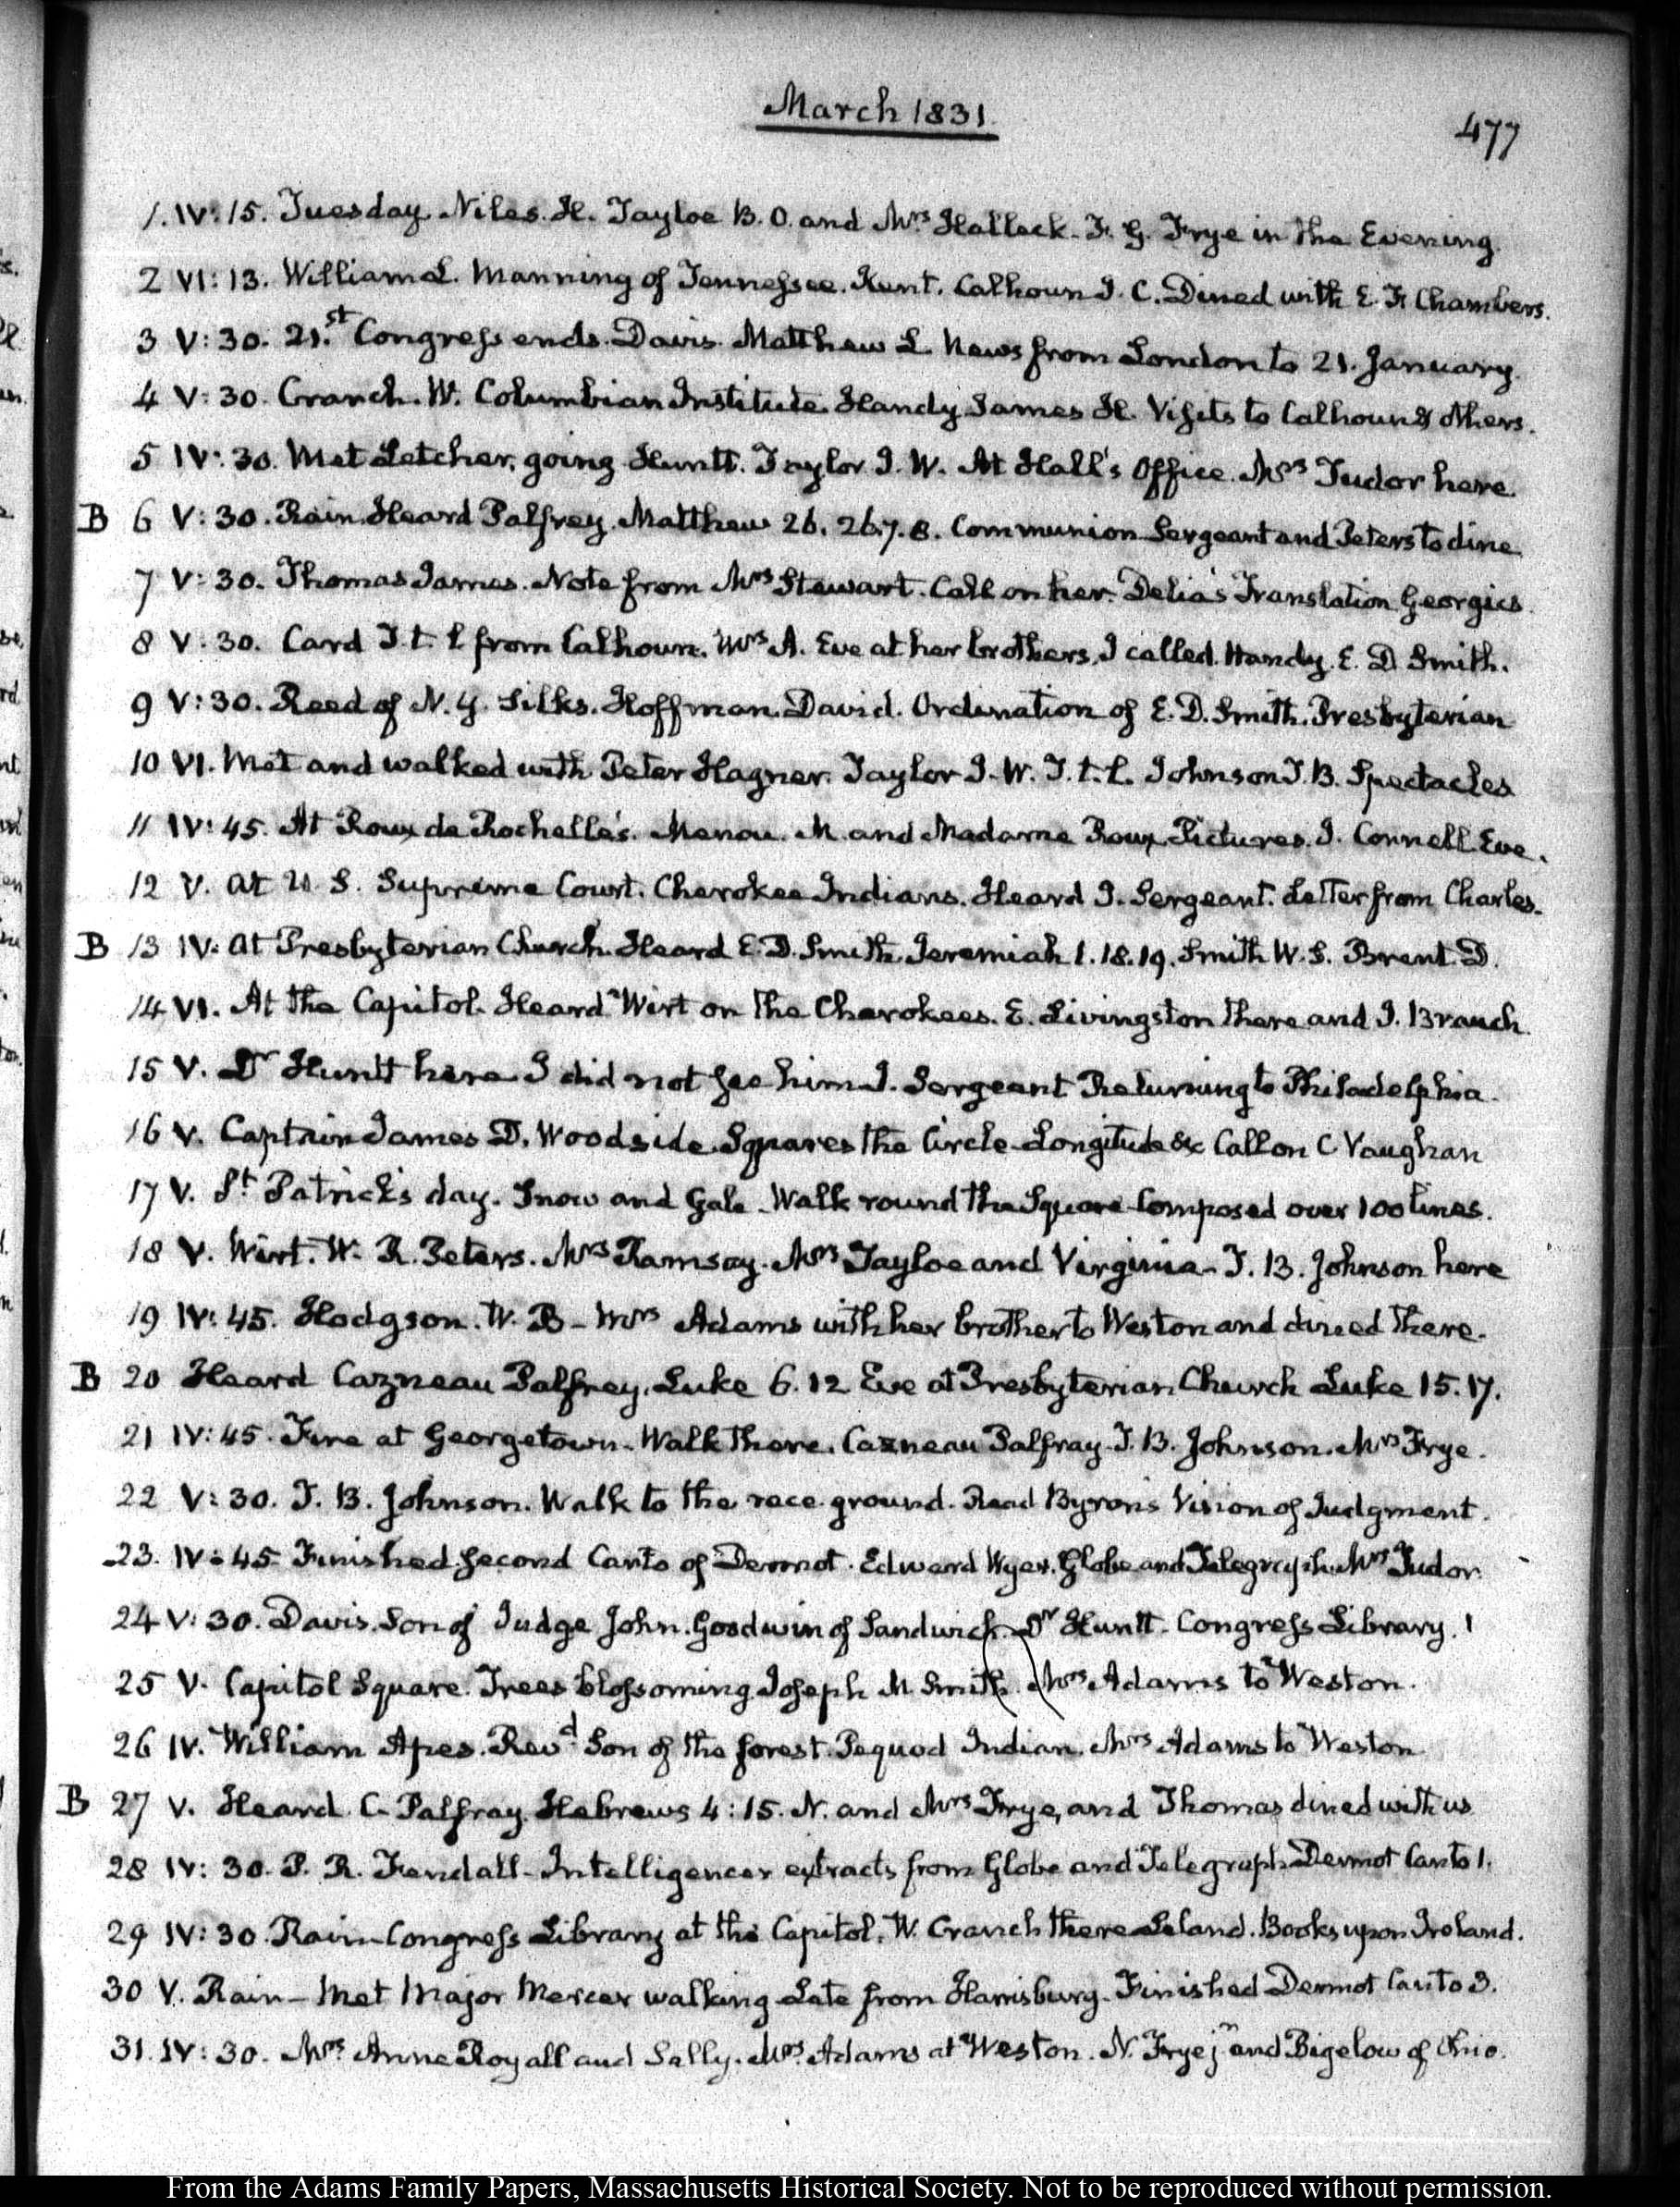 March 1831
477
1. IV:15. Tuesday. Niles. H. Tayloe B. O. and Mrs Hallock. F. G. Frye in the Evening.
2 VI:13. William L. Manning of Tennessee. Kent. Calhoun J. C. Dined with E. F. Chambers.
3 V:30. 21.st Congress ends. Davis Matthew L. News from London to 21. January.
4 V:30. Cranch. W. Columbian Institute. Handy James H. Visits to Calhoun & others.
5 IV:30. Met Letcher, going Huntt. Taylor J. W. At Hall's Office. Mrs Tudor here.
B 6 V:30. Rain. Heard Palfrey. Matthew 26. 26.7.8. Communion Sergeant and Peters to dine
7 V:30. Thomas James. Note from Mrs Stewart. Call on her. Delia's Translation Georgics
8 V:30. Card T. t. l from Calhoun. Mrs A. Eve at her brothers, I called. Handy. E. D Smith.
9 V:30. Reed of N. Y. Silks. Hoffman David. Ordination of E. D. Smith. Presbyterian
10 VI. Met and walked with Peter Hagner. Taylor J. W. T. t. l. Johnson T. B. Spectacles
11 IV:45. At Roux de Rochelle's. Menou. M. and Madame Roux Pictures. J. Connell Eve.
12 V. At U. S. Supreme Court. Cherokee Indians. Heard J. Sergeant. Letter from Charles.
B 13 IV. At Presbyterian Church. Heard E. D. Smith Jeremiah 1. 18. 19. Smith W. S. Brent. D.
14 VI. At the Capitol. Heard Wirt on the Cherokees. E. Livingston there and J. Branch.
15 V. Dr Huntt here I did not see him J. Sergeant Returning to Philadelphia.
16 V. Captain James D. Woodside Squares the Circle Longitude &c Call on C Vaughan
17 V. St Patrick's day. Snow and Gale. Walk round the Square Composed over 100 lines.
18 V. Wirt. W. R. Peters. Mrs Ramsay. Mrs Tayloe and Virginia. T. B. Johnson here
19 IV:45. Hodgson. W. B – Mrs Adams with her brother to Weston and dined there.
B 20 Heard Cazneau Palfrey. Luke 6. 12 Eve at Presbyterian Church Luke 15. 17.
21 IV:45. Fire at Georgetown. Walk there. Cazneau Palfrey. T. B. Johnson. Mrs Frye.
22 V:30. T. B. Johnson. Walk to the race ground. Read Byron's Vision of Judgment.
23. IV:45 Finished second Canto of Dermot. Edward Wyer. Globe and Telegraph. Mrs Tudor
24 V:30. Davis. Son of Judge John. Goodwin of Sandwich. Dr Huntt. Congress Library.
25 V. Capitol Square. Trees blossoming Joseph M Smith. Mrs Adams to Weston.
26 IV. William Apes. Revd Son of the forest. Pequod Indian. Mrs Adams to Weston
B 27 V. Heard C. Palfray. Hebrews 4:15. N. and Mrs Frye, and Thomas dined with us
28 IV:30. P. R. Fendall – Intelligencer extracts from Globe and Telegraph Dermot Canto 1.
29 IV:30. Rain – Congress Library at the Capitol. W. Cranch there Leland. Books upon Ireland.
30 V. Rain – Met Major Mercer walking Late from Harrisburg. Finished Dermot Canto 3.
31. IV:30. Mrs. Anne Royall and Sally. Mrs. Adams at Weston. N. Frye jr and Bigelow of Ohio.
From the Adams Family Papers, Massachusetts Historical Society. Not to be reproduced without permission.